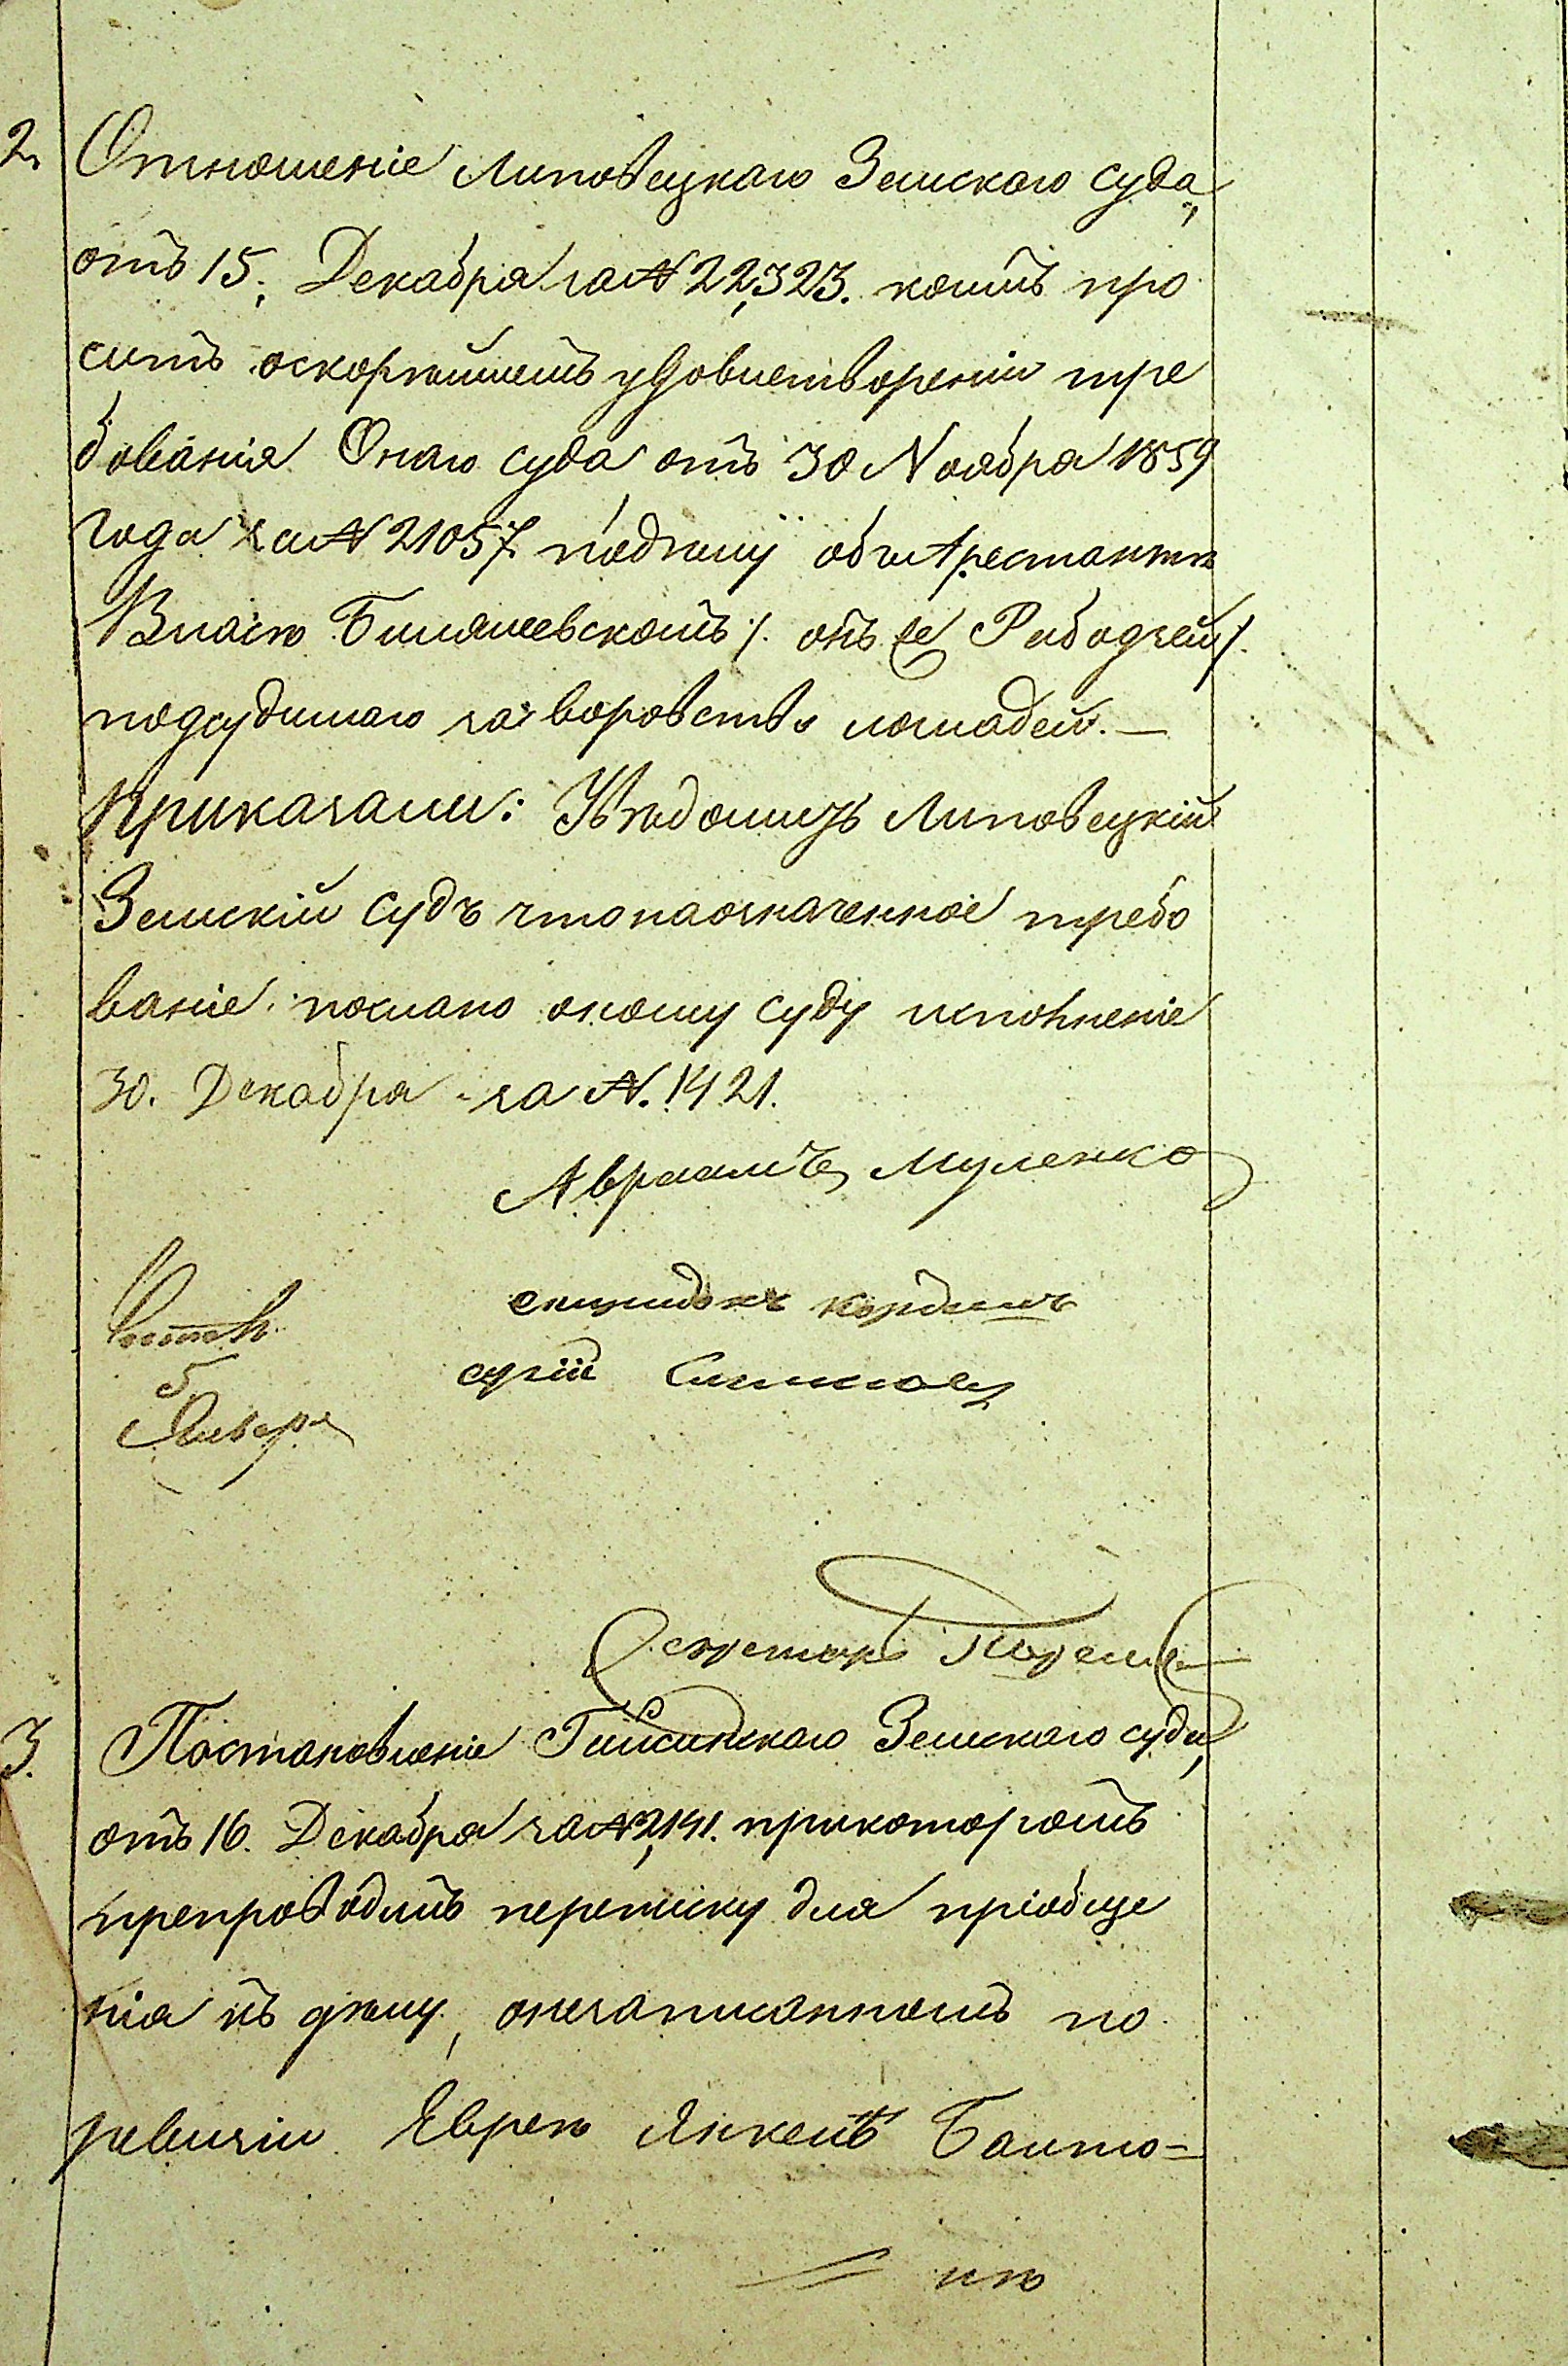 2. Отношеніе Липовецкаго Земскаго суда,
отъ 15. Декабря за № 22,323. коимъ про
ситъ оскорѣйшемъ удовлетвореніи тре
бованія Онаго суда отъ 30 Ноября 1859
года за № 21057. подѣлу объ Арестантѣ
Власѣ
подсудимаго за воровство лошадей. —
Приказали: Увѣдомить Липовецкій
Земскій судъ что наозначенное требо
ваніе послано оному суду исполненіе
30. Декабря за №. 1421.
Авраамъ Муленко
5
Января
Секретарь
3. Постановленіе Гайсинскаго Земскаго суда,
отъ 16. Декабря за № 2,141. прикоторомъ
препроводитъ переписку для пріобще
нія къ дѣлу, онезаписанномъ по
ревизіи Евреѣ Янкелѣ